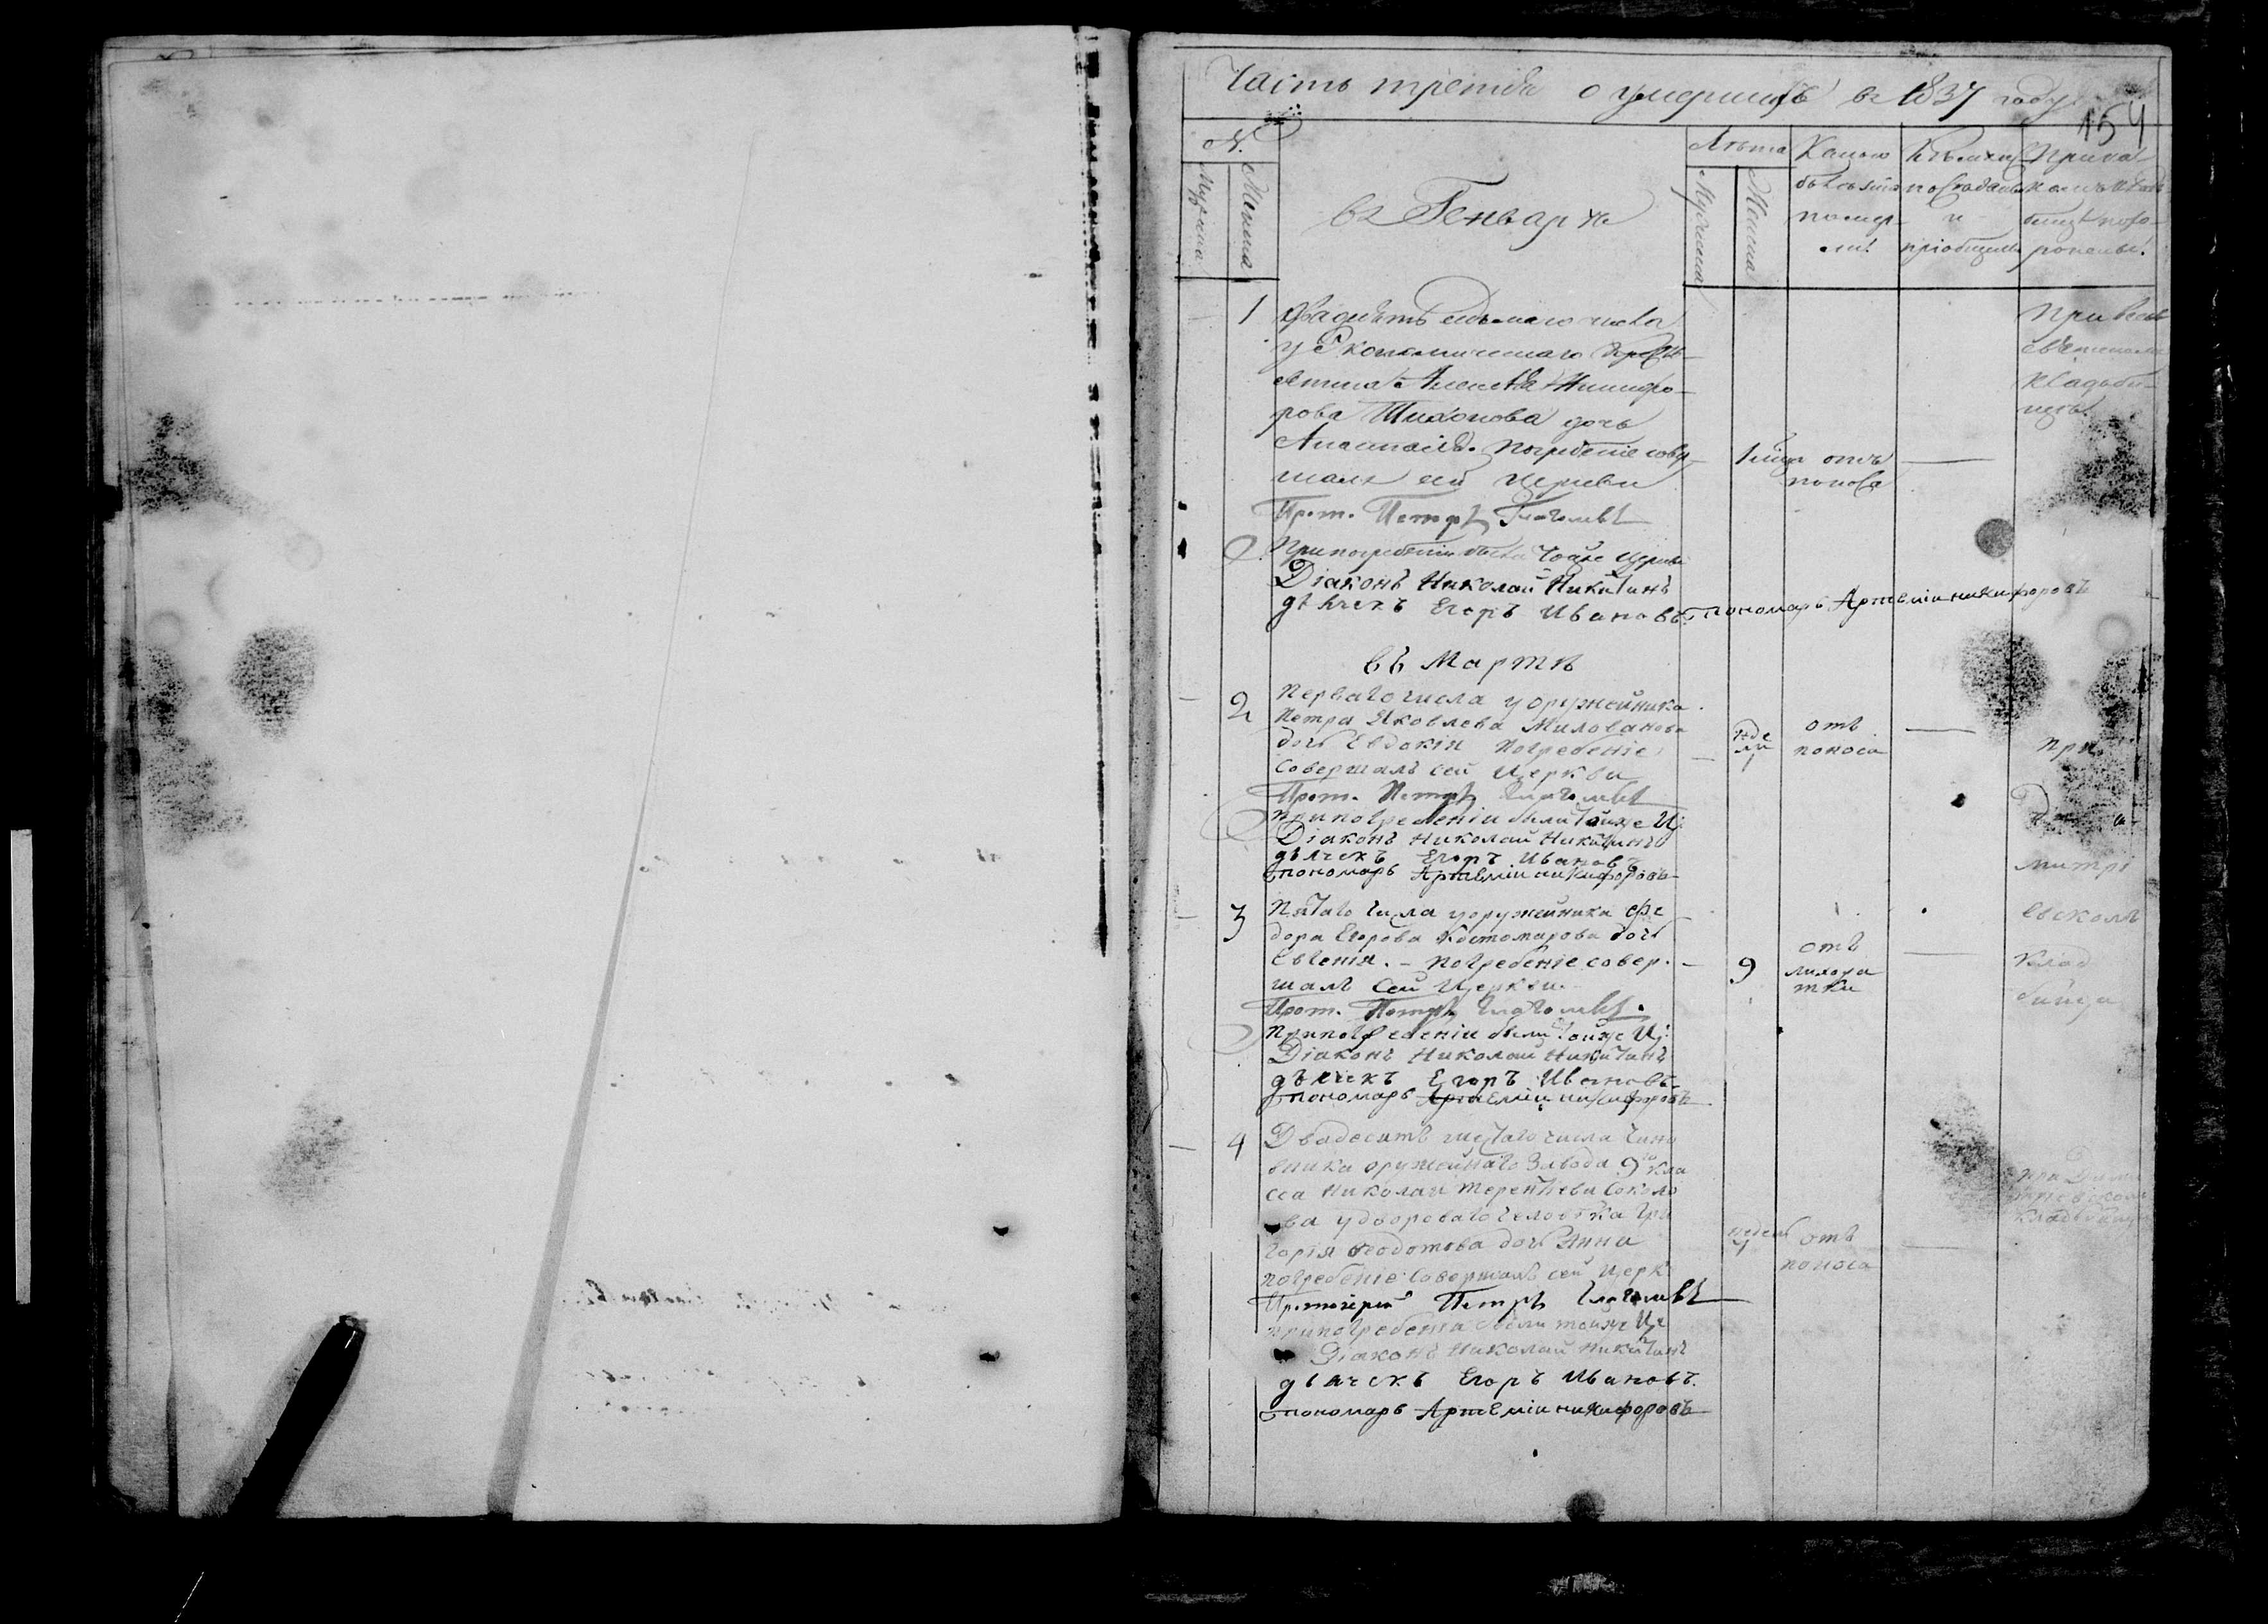 Часть третія о умершихъ въ 1837 году.
154
N.
Мужеска
Женска
въ Генваръ
Лѣта
Мужеска
Женска
Какою болѣзнію померли.
Кѣмъ исповѣданы и пріобщены
При какомъ кладбищѣ похоронены.
1
седьмаго числа
у Економическаго крестья
Никифо-
рова Тихонова дочь
Анастасія. Погребеніе совер
шалъ сей церкви
Прот. Петръ Глаголевъ
При погребеніи были тойже церкви
Діаконъ Николай Никитинъ
дьячекъ Егоръ Ивановъ. пономарь Артемій никифоровъ
1 отъ
поноса
При
кладби-
щѣ.
въ Мартѣ
2
Перваго числа у оружейника
Петра Яковлева Милованова
дочь Евдокія погребеніе
совершалъ сей Церкви
Прот. Петръ Глаголевъ
При погребеніи были тойже Ц:
Діаконъ Николай Никитинъ
дьячекъ Егоръ Ивановъ
пономарь Артемій никифоровъ
неде
ли
отъ
поноса
при
Ди
митрі
евскомъ
клад
бищѣ
3
Пятаго числа у оружейника Фе
дора Егорова Костомарова дочь
Евгенія. – погребеніе совер.
шалъ сей Церкви.
Прот. Петръ Глаголевъ.
При погребеніи были тойже Ц:
Діаконъ Николай Никитинъ
дьячекъ Егоръ Ивановъ.
пономарь Артемій никифоровъ
9
отъ
лихора
тки
4
Двадесять шестаго числа Чино
вника оружейнаго Завода 9го кла
сса Николая Терентьева Соколо
ва у двороваго человѣка Гри
горія Ѳеодотова дочь Анна
погребеніе совершалъ сей Церк
Протоіерей Петръ Глаголевъ
при погребеніи были тойже Це
Діаконъ Николай Никитинъ
дьячекъ Егоръ Ивановъ.
пономарь Артемій никифоровъ
недель
отъ
поноса
при Дими
тріевскомъ
кладбищѣ